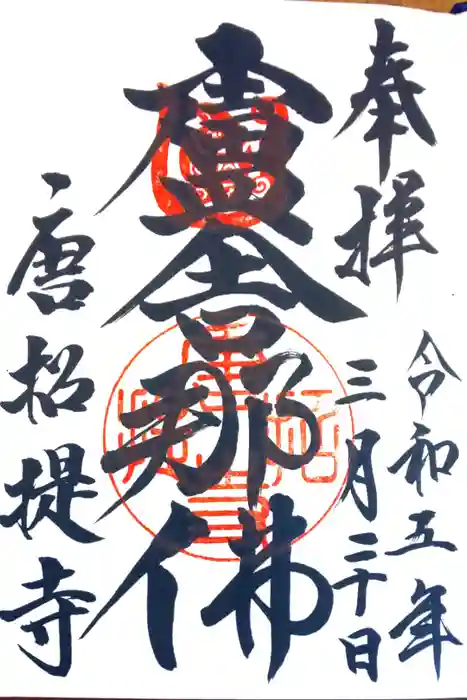 奉拝
令和五年
三月二十日
盧舎那佛
唐招提寺